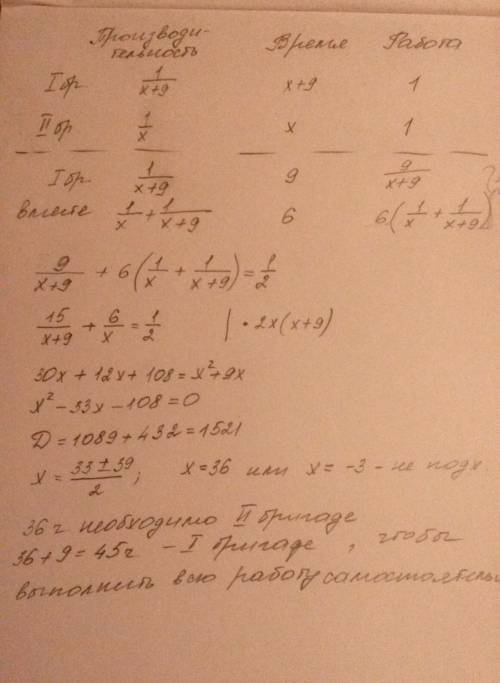 Производи-
тельность Время Работа
I бр 1/(x+9) x+9 1
II бр 1/x x 1
I бр 1/(x+9) 9 9/(x+9)
вместе 1/x + 1/(x+9) 6 6(1/x + 1/(x+9))
9/(x+9) + 6(1/x + 1/(x+9)) = 1/2
15/(x+9) + 6/x = 1/2 | · 2x(x+9)
30x + 12x + 108 = x² + 9x
x² - 33x - 108 = 0
D = 1089 + 432 = 1521
x = (33 ± 39)/2; x = 36 или x = -3 - не подх.
36 ч необходимо II бригаде
36 + 9 = 45 ч - I бригаде, чтобы
выполнить всю работу самостоятельн